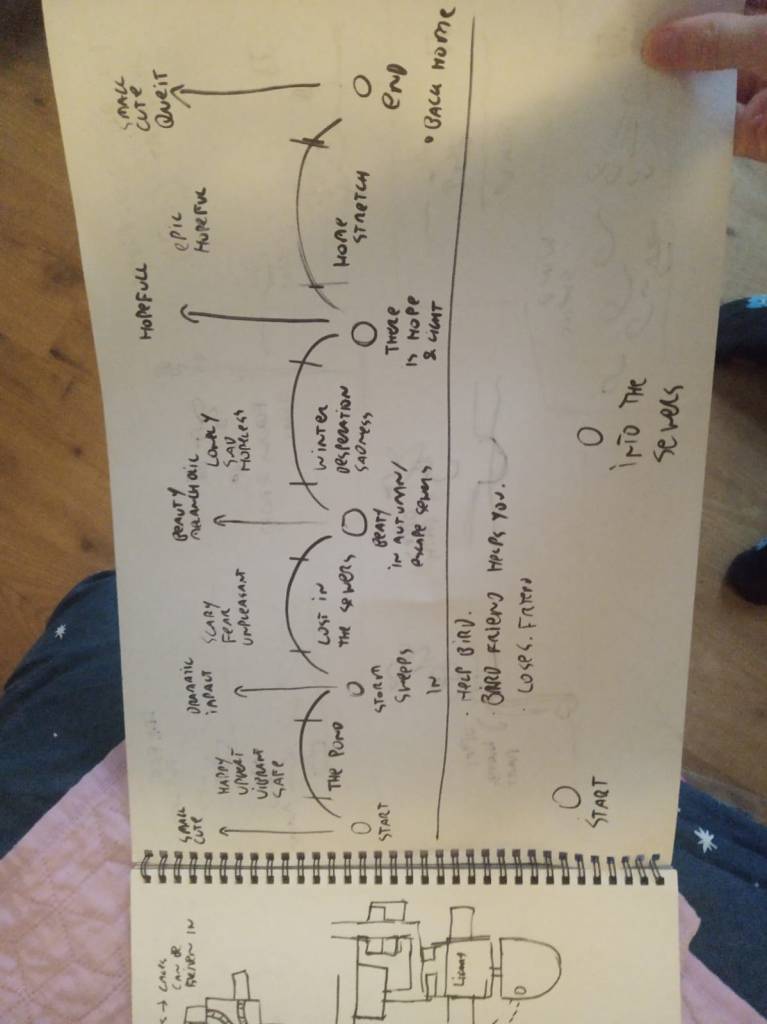 SMALL
CUTE
HAPPY
UPBEAT
VIBRANT
SAFE
DRAMATIC
IMPACT
SCARY
FEAR
UNPLEASANT
BEAUTY
MELANCHOLIC
LONELY
SAD
HOPELESS
HOPEFULL
EPIC
HOPEFUL
SMALL
CUTE
QUEIT
THE POND
LOST IN
THE SEWERS
WINTER
DESPERATION
SADNESS
HOME
STRETCH
START
STORM
SWEEPS
IN
BEATY
IN AUTUMN/
ESCAPE SEWERS
THERE
IS HOPE
& LIGHT
END
• BACK HOME
· HELP BIRD.
· BIRD FRIEND HELPS YOU.
· LOSES. FRIEND
START
INTO THE
SEWERS
CAN BE
IN
LIBRARY